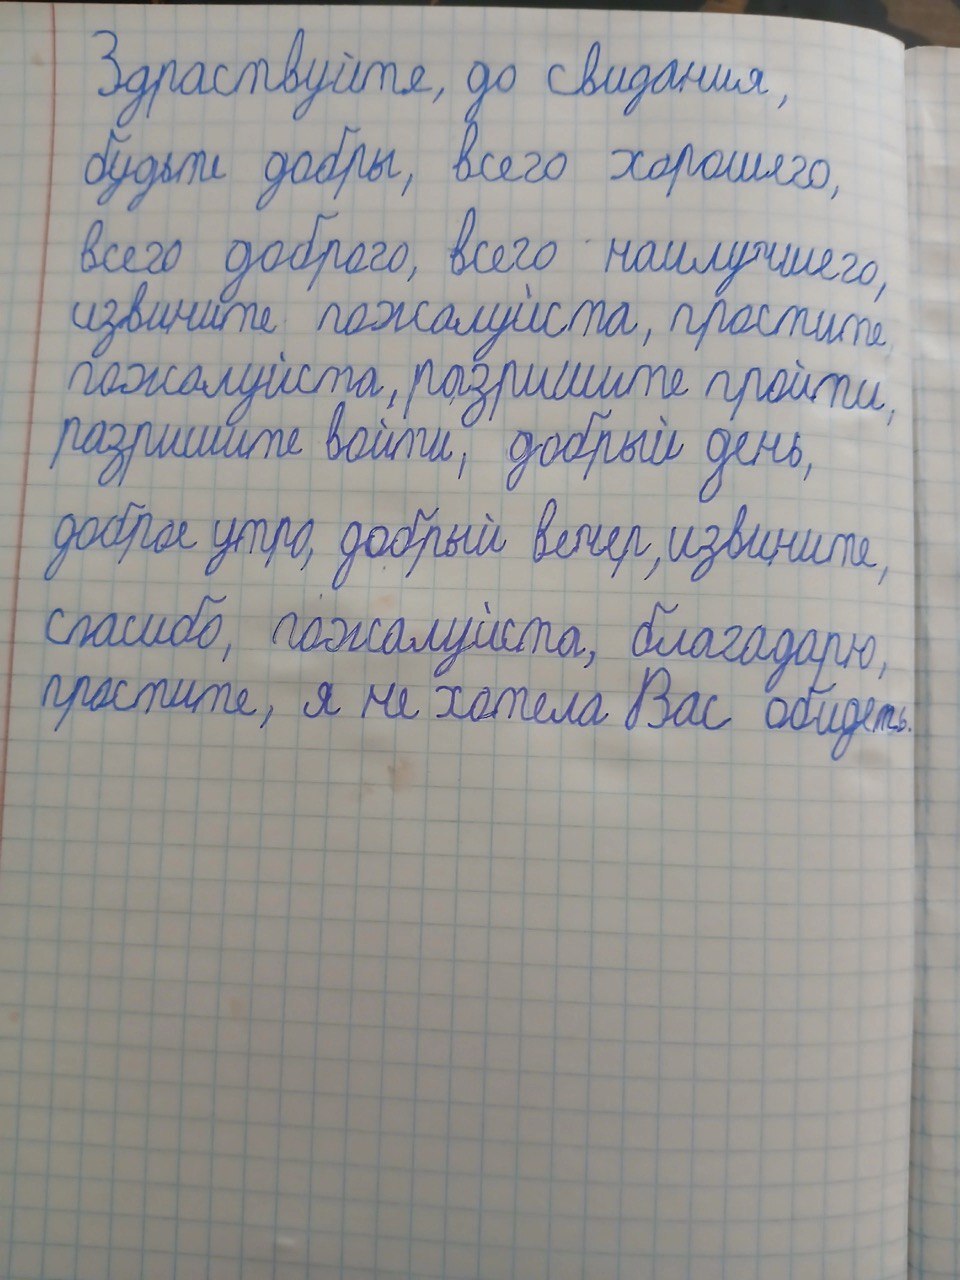 Здраствуйте, до свидания,
будьте добры, всего хорошего,
всего доброго, всего наилучшего,
извините пожалуйста, простите,
пожалуйста, разришите пройти,
разришите войти, добрый день,
доброе утро, добрый вечер, извините,
спасибо, пожалуйста, благадарю,
простите, я не хотела Вас обидеть.